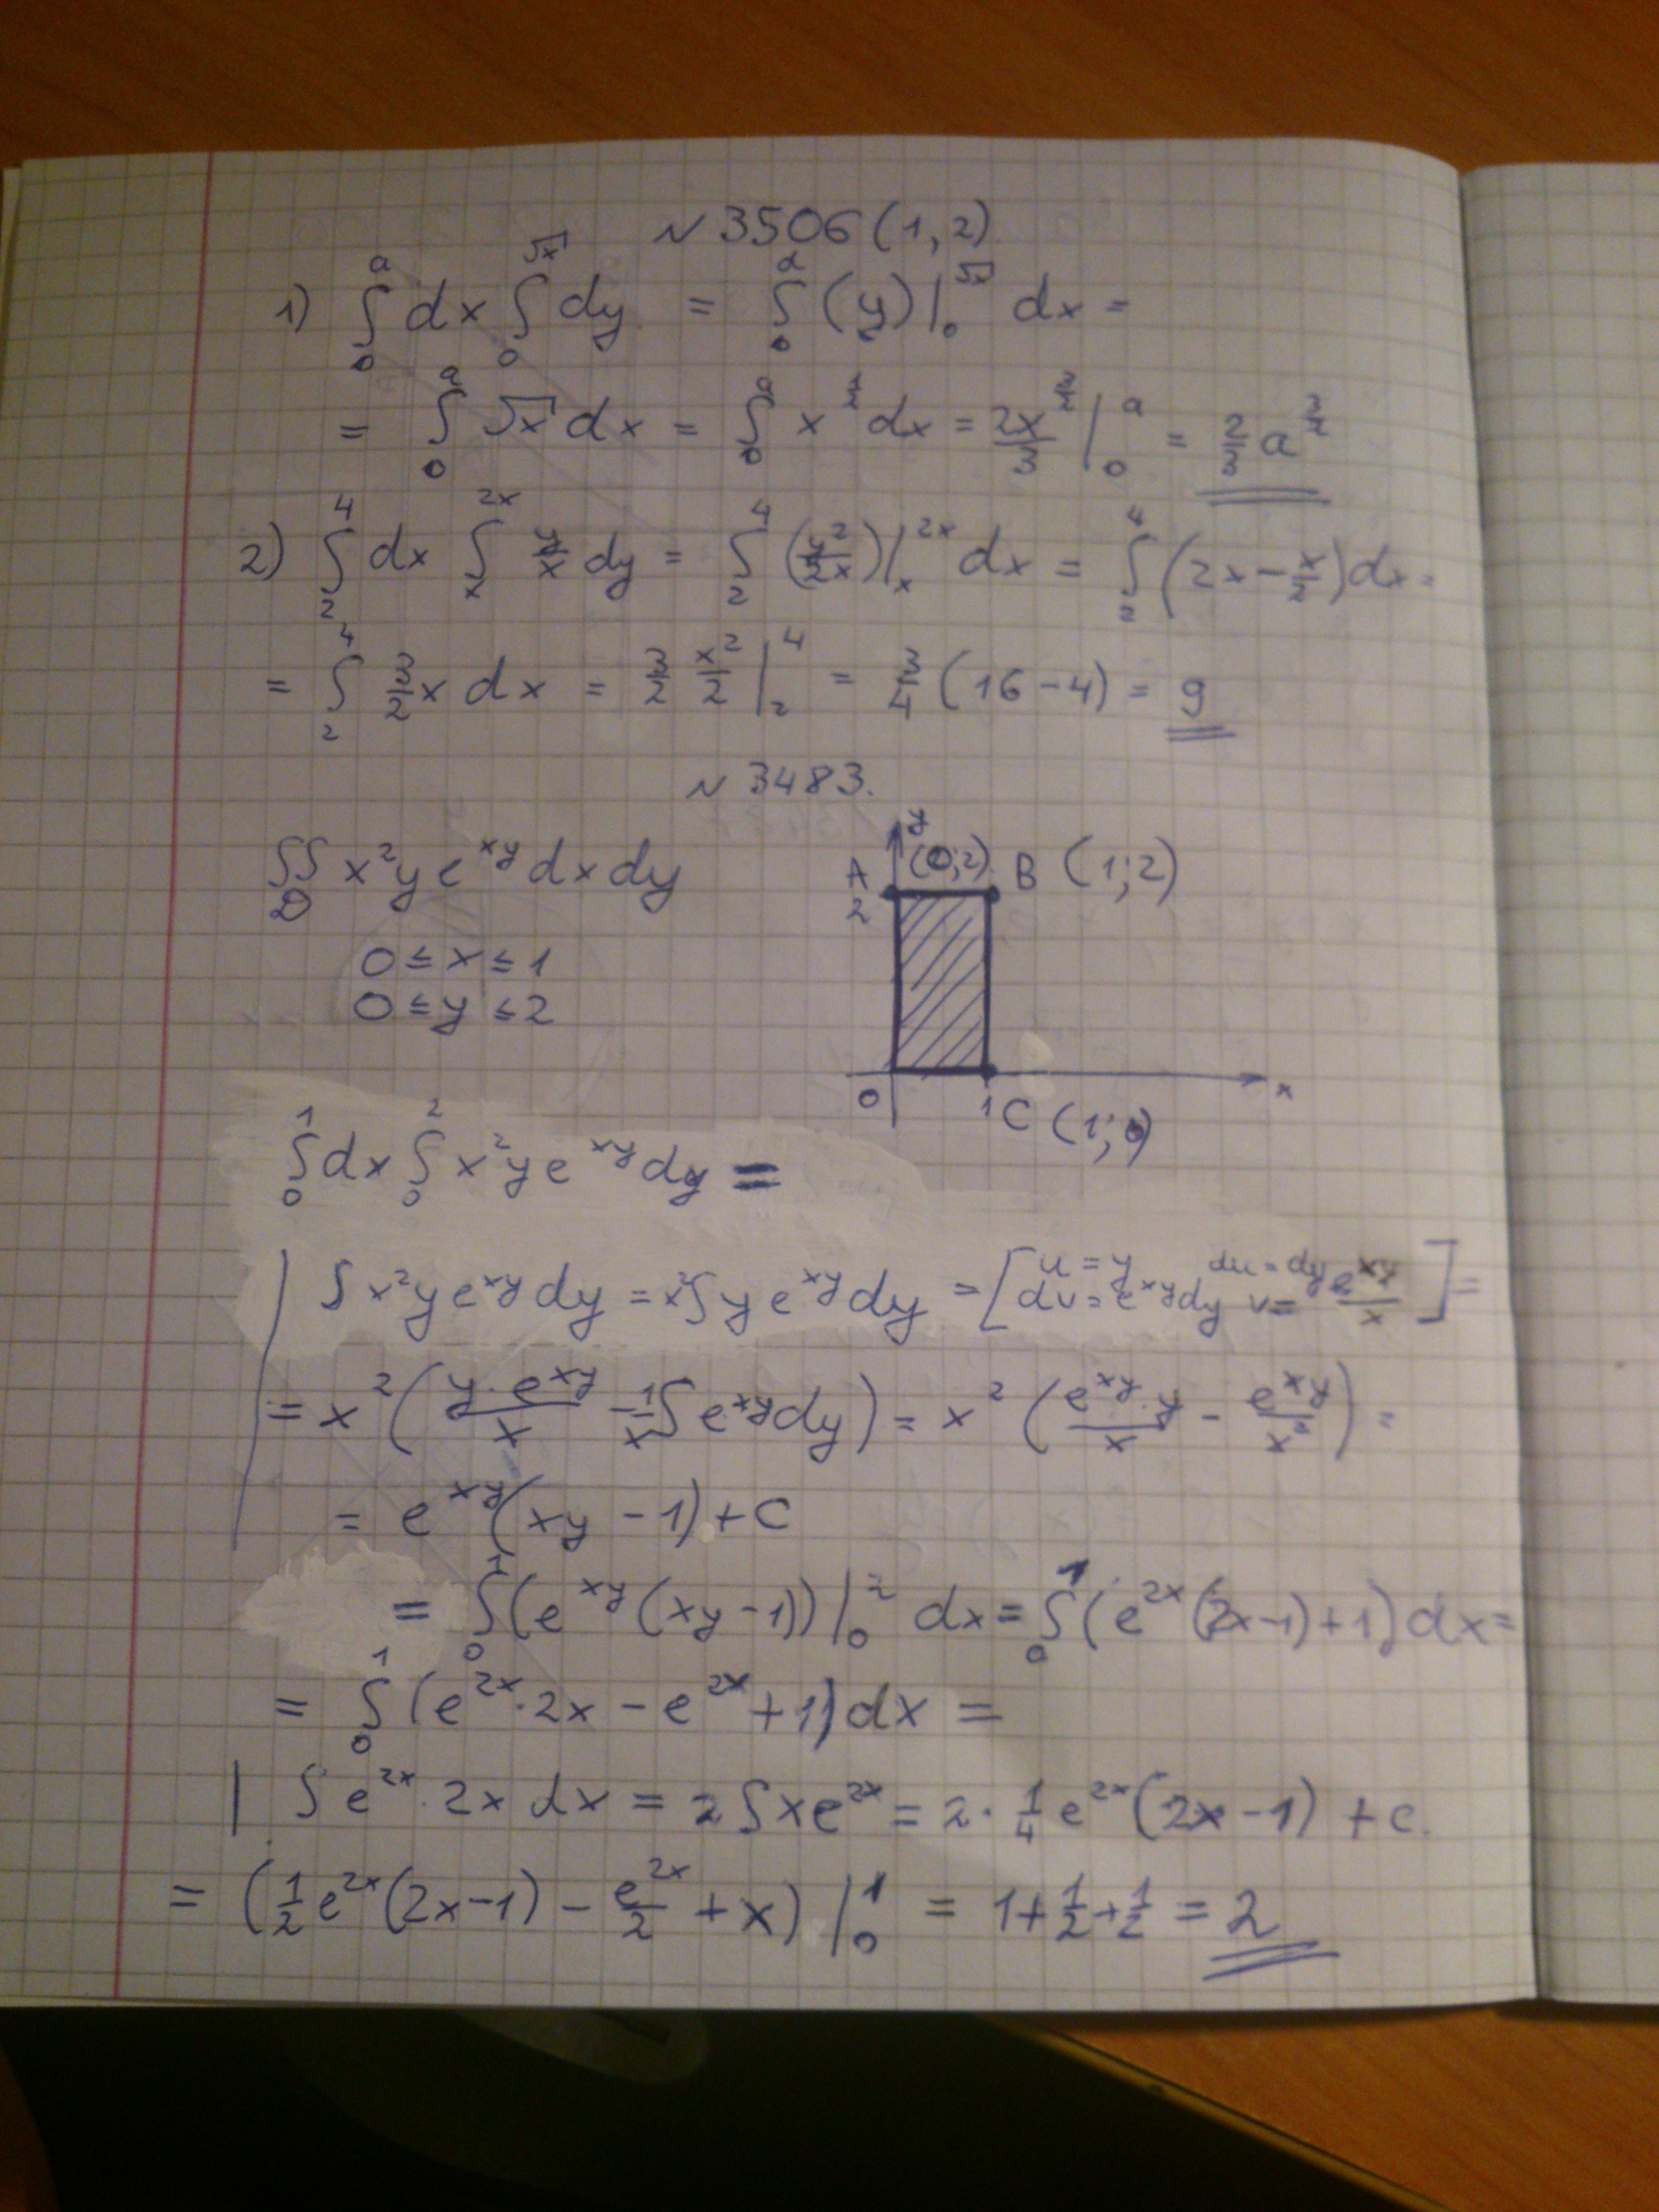 № 3506 (1, 2)
1) ∫₀ᵃ dx ∫₀^√x dy = ∫₀ᵃ (y)|₀^√x dx =
= ∫₀ᵃ √x dx = ∫₀ᵃ x^(1/2) dx = 2x^(3/2)/3 |₀ᵃ = 2/3 a^(3/2)
2) ∫₂⁴ dx ∫ₓ^2x y/x dy = ∫₂⁴ (y²/2x)|ₓ^2x dx = ∫₂⁴ (2x - x/2) dx =
= ∫₂⁴ 3/2 x dx = 3/2 x²/2 |₂⁴ = 3/4 (16 - 4) = 9
№ 3483.
∫∫_D x²y e^xy dx dy
0 ≤ x ≤ 1
0 ≤ y ≤ 2
y
A (0;2) B (1;2)
2
0 1 C (1;0) x
∫₀¹ dx ∫₀² x²y e^xy dy =
| ∫ x²y e^xy dy = x² ∫ y e^xy dy = [u = y du = dy
dv = e^xy dy v = e^xy/x] =
= x² (y·e^xy/x - 1/x ∫ e^xy dy) = x² (e^xy·y/x - e^xy/x²) =
= e^xy (xy - 1) + C
= ∫₀¹ (e^xy (xy - 1))|₀² dx = ∫₀¹ (e^2x (2x - 1) + 1) dx =
= ∫₀¹ (e^2x · 2x - e^2x + 1) dx =
| ∫ e^2x · 2x dx = 2 ∫ x e^2x = 2 · 1/4 e^2x (2x - 1) + c.
= (1/2 e^2x (2x - 1) - e^2x/2 + x) |₀¹ = 1 + 1/2 + 1/2 = 2